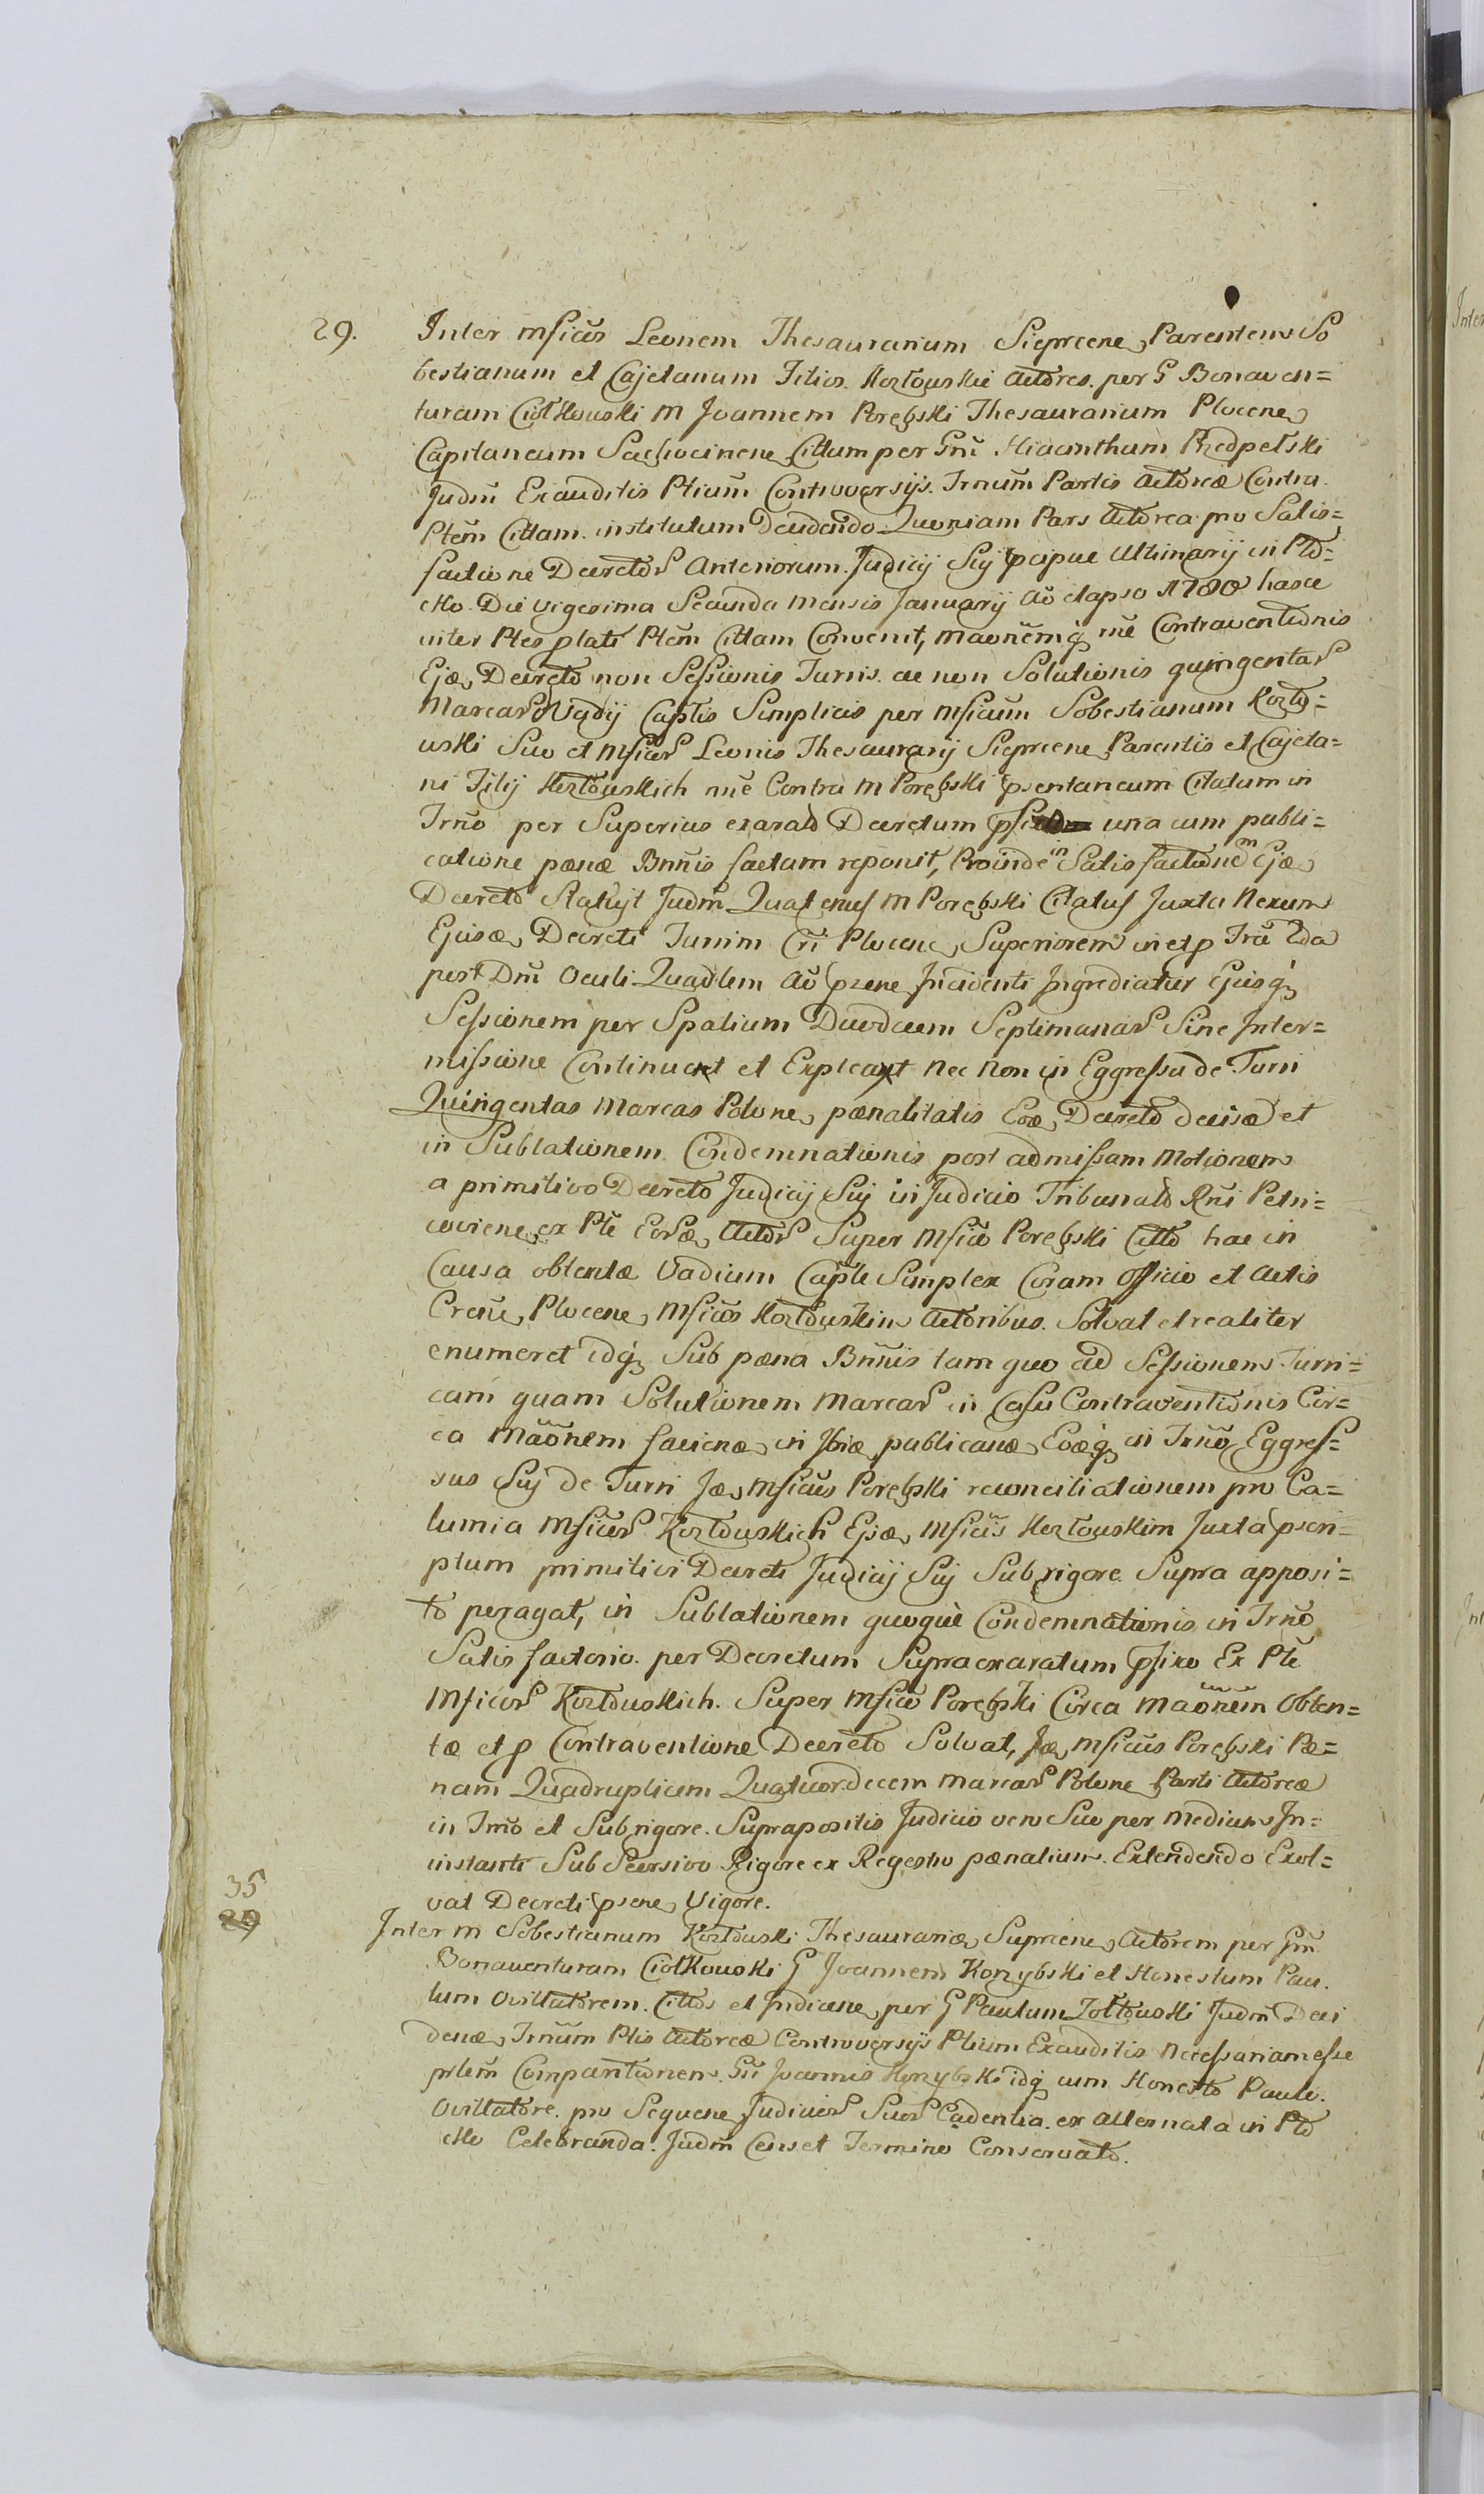 29. Inter Mficos Leonem Thesaurarium Sieprcene, Parentem So
bestianum et Cajetanum Filios Kozłowskie Actores per G Bonaven=
turam Ciołkowski M Joannem Porębski Thesaurarium Plocene,
Capitaneum Sachocinene, Cittum per Gnu Hiacinthum Przedpełski
Judm Exauditis Ptium Controversijs Trnum Partis Actoreæ Contra
Ptem Cittam institutum Decidendo Quoniam Pars Actorea pro Satis=
factione Decretor Anteriorum Judicij Sui pcipue Ultimarij in Pto=
cko Die Vigesima Secunda Mensis January Ao elapso 1780 hasce
inter Ptes plati Ptem Cittam Convenit, maonemq me Contraventionis
Ejæ, Decreto non Sessionis Turris ac non Solutionis quingentar
Marcar Vadij Captis Simplicis per Mficum Sobestianum Kozło=
wski Suo et Mficor Leonis Thesaurarij Sieprcene Parentis et Cajeta=
ni Filij Kozłowskich me Contra M Porębski psentaneum Citatum in
Trno per Superius exarato Decretum una cum publi=
catione pænæ Bnnis factam reponit, Proinde in Satisfactionem Ejæ,
Decreto Statuit Judm Quatenus M Porębski Citatus Juxta Nexum
Ejusæ, Decreti Turrim Cri Plocene, Superiorem in et p Tra 2da
post Dm Oculi Quadlem Ao pzene Incidenti Ingrediatur Ejusq
Sessionem per Spatium Duodecem Septimanar Sine Inter=
missione Continuet et Expleat Nec Non in Eggressu de Turri
Quingentas Marcas Polone, pænalitatis Eoæ, Decreto decisæ et
in Sublationem Condemnationis post admissam Motionem
a primitivo Decreto Judicij Sui in Judicio Tribunato Rni Petri=
coviene, ex Pte Eorsæ, Actor Super Mfico Porębski Citto hac in
Causa obtentæ Vadium Capti Simplex Coram Officio et Actis
Crene, Plocene, Mficos Kozłowskim Actoribus Solvat et realiter
enumeret idq Sub pæna Bnnis tam quo ad Sessionem Turri=
cam quam Solutionem Marcar in Casu Contraventionis Cir=
ca Maonem facienæ, in Jbiæ publicanæ, Eoæq in Trno Eggres=
sus Sui de Turri Jæ, Mficus Porębski reconciliationem pro Ca=
lumia Mficor Kozłowskich Ejæ, Mficis Kozłowskim Juxta pscri=
ptum primitivi Decreti Judicij Sui Sub rigore Supra apposi=
to peragat, in Sublationem quoque Condemnationis in Trno
Satisfactorio per Decretum Supraexaratum pfixo Ex Pte
Mficor Kozłowskich Super Mfico Porębski Circa Maonem Obten=
tæ et p Contraventione Decreto Solvat, Jæ, Mficus Porębski Pæ=
nam Quadruplicem Quatuordecem Marcar Polone Parti Actoreæ
in Trno et Sub rigore Suprapositis Judicio vero Suo per Medium In=
instanti Sub Recursivo Rigore ex Regestro pænalium Extendendo Exol=
vat Decreti psene, Vigore.
35
29 Inter M Sobestianum Kozłowski Thesaurariæ, Sieprcene, Actorem per Gm
Bonaventuram Ciołkowski G Joannem Konybski et Honestum Pau
lum Ovillatorem Cittos et Indicene, per G Paulum Żołtowski Judm Deci
denæ, Trnum Ptis Actoreæ Controversijs Ptium Exauditis Necessariam esse
prlem Comparitionem Gni Joannis Konybski idq cum Honesto Paulo
Ovillatore pro Sequene, Judicior Suor Cadentia ex Alternata in Pto
cko Celebranda Judm Censet Termino Conservato.